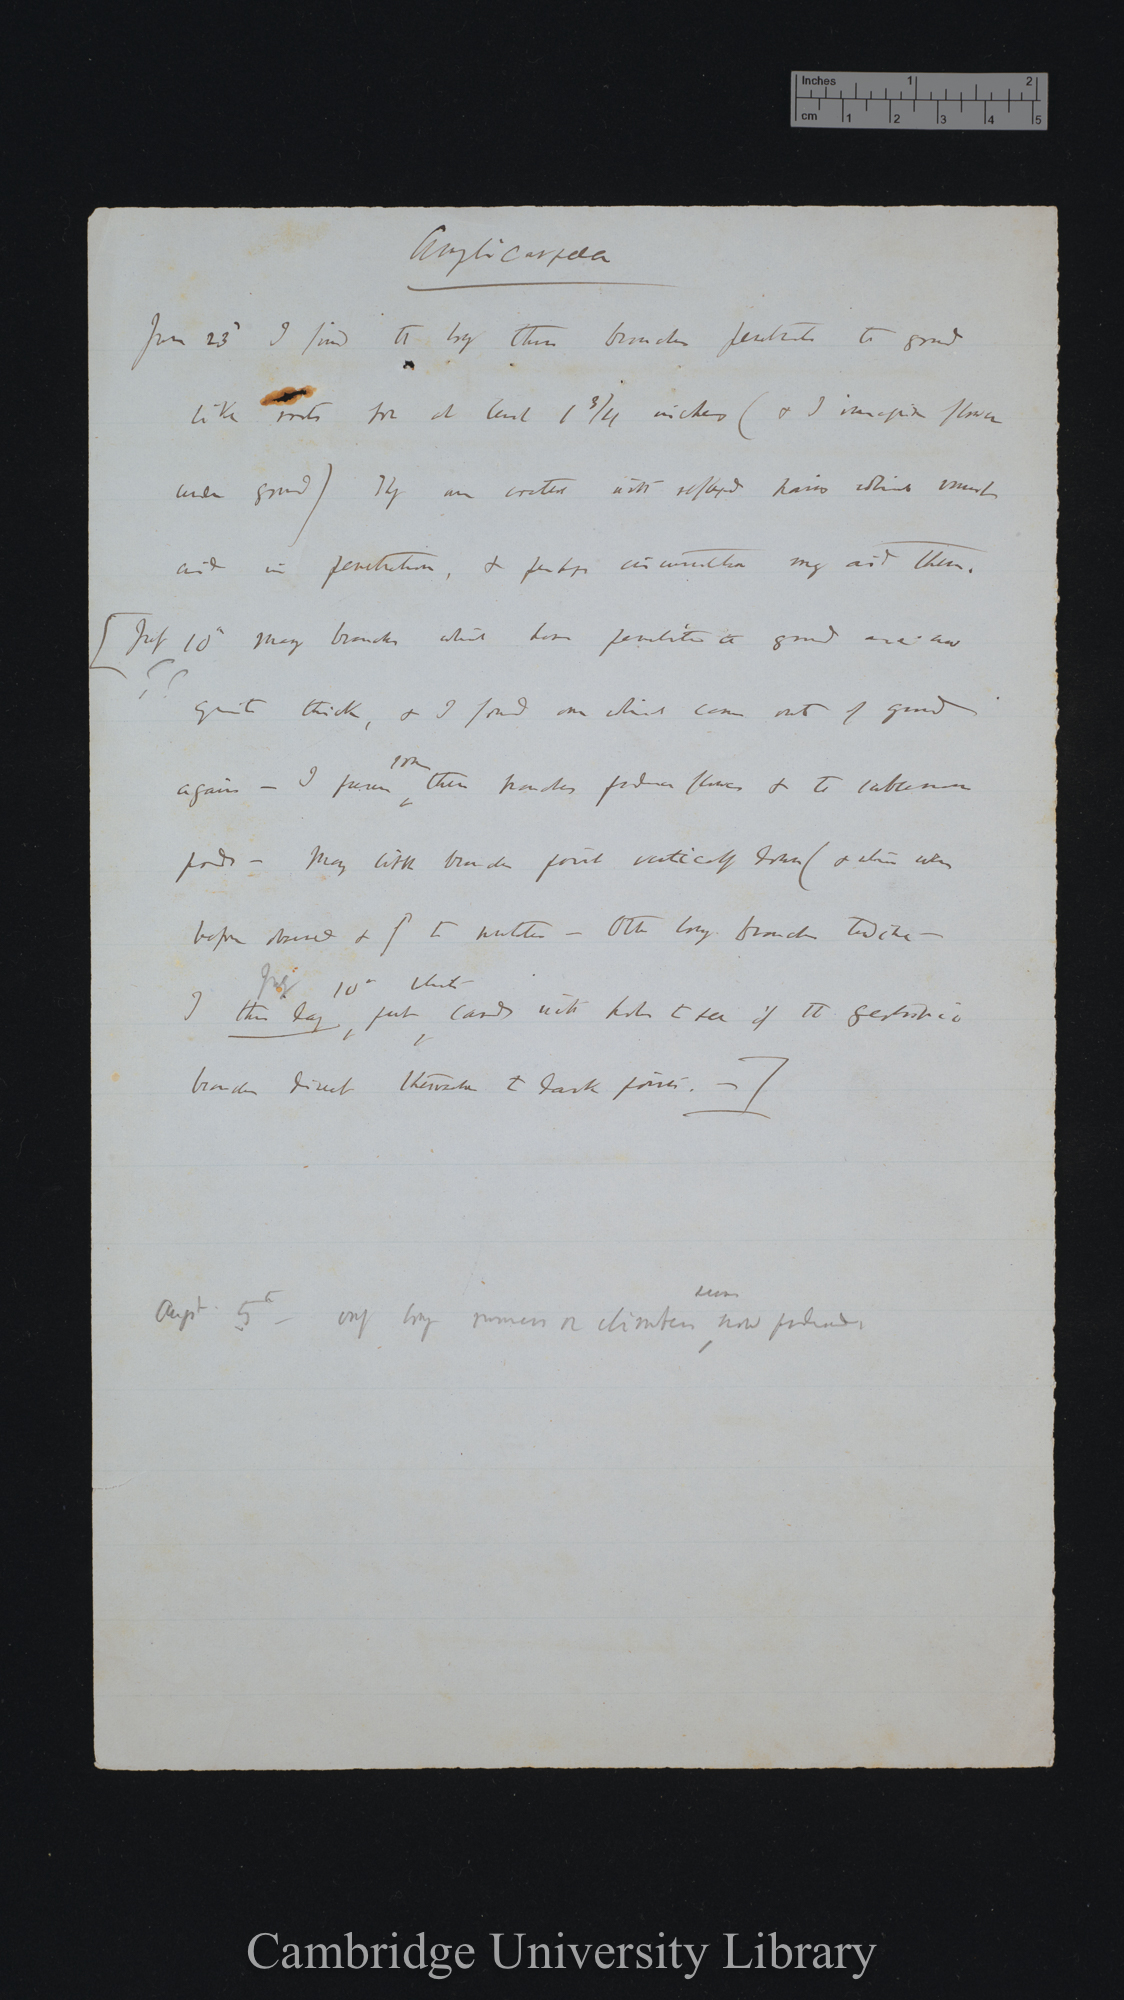 Inches 1 2
cm 1 2 3 4 5
Amphicarpaea
June 23d I find the long thin branches penetrate the ground
like roots for at least 1 3/4 inches ( & I imagine flower
under ground) They are coated with reflexed hairs which must
aid in penetration, & perhaps circumnutation may aid them.
[July 10th Many branches which have penetrated the ground are now
quite thick, & I found one which came out of ground
again — I presume some these branches produce flowers & the subterranean
pods — Many little branches point vertically down ( & these were
before observed & to nutate — Other long branches twine —
July 10th
I this day, put cards with holes to see if the geotropic
branches direct themselves to dark points. —]
Augst. 5th — only long runners or climbers seem now produced.
Cambridge University Library